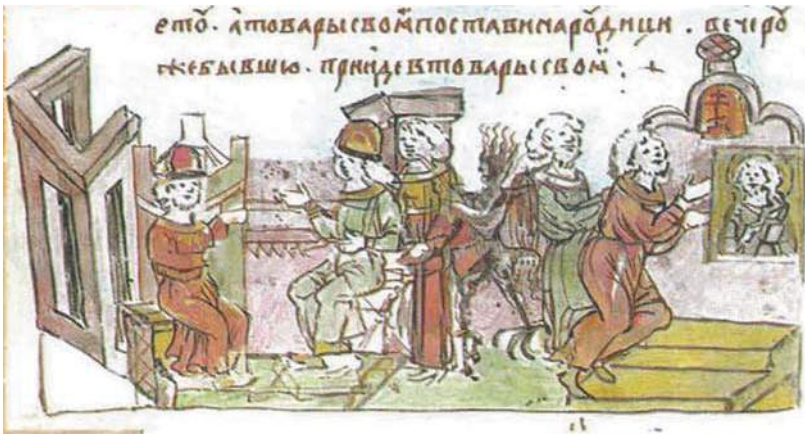 ето҃ · атоварысвоꙗпоставинагоѻдици · вечеро҃
жебывшю · прїидевтоварысвоꙗ : +